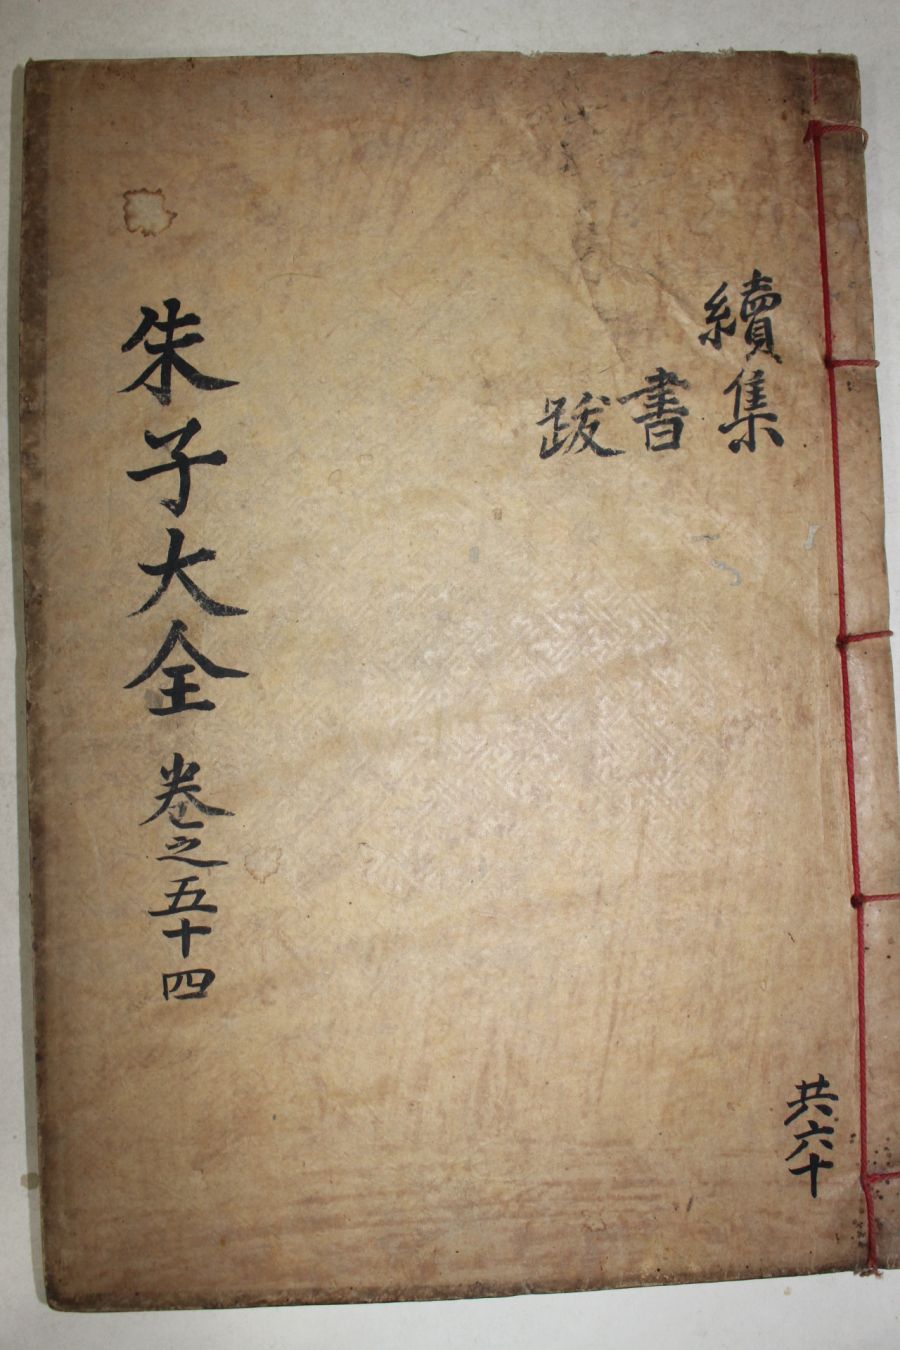 續集
書
跋
朱子大全 卷之五十四
共六十